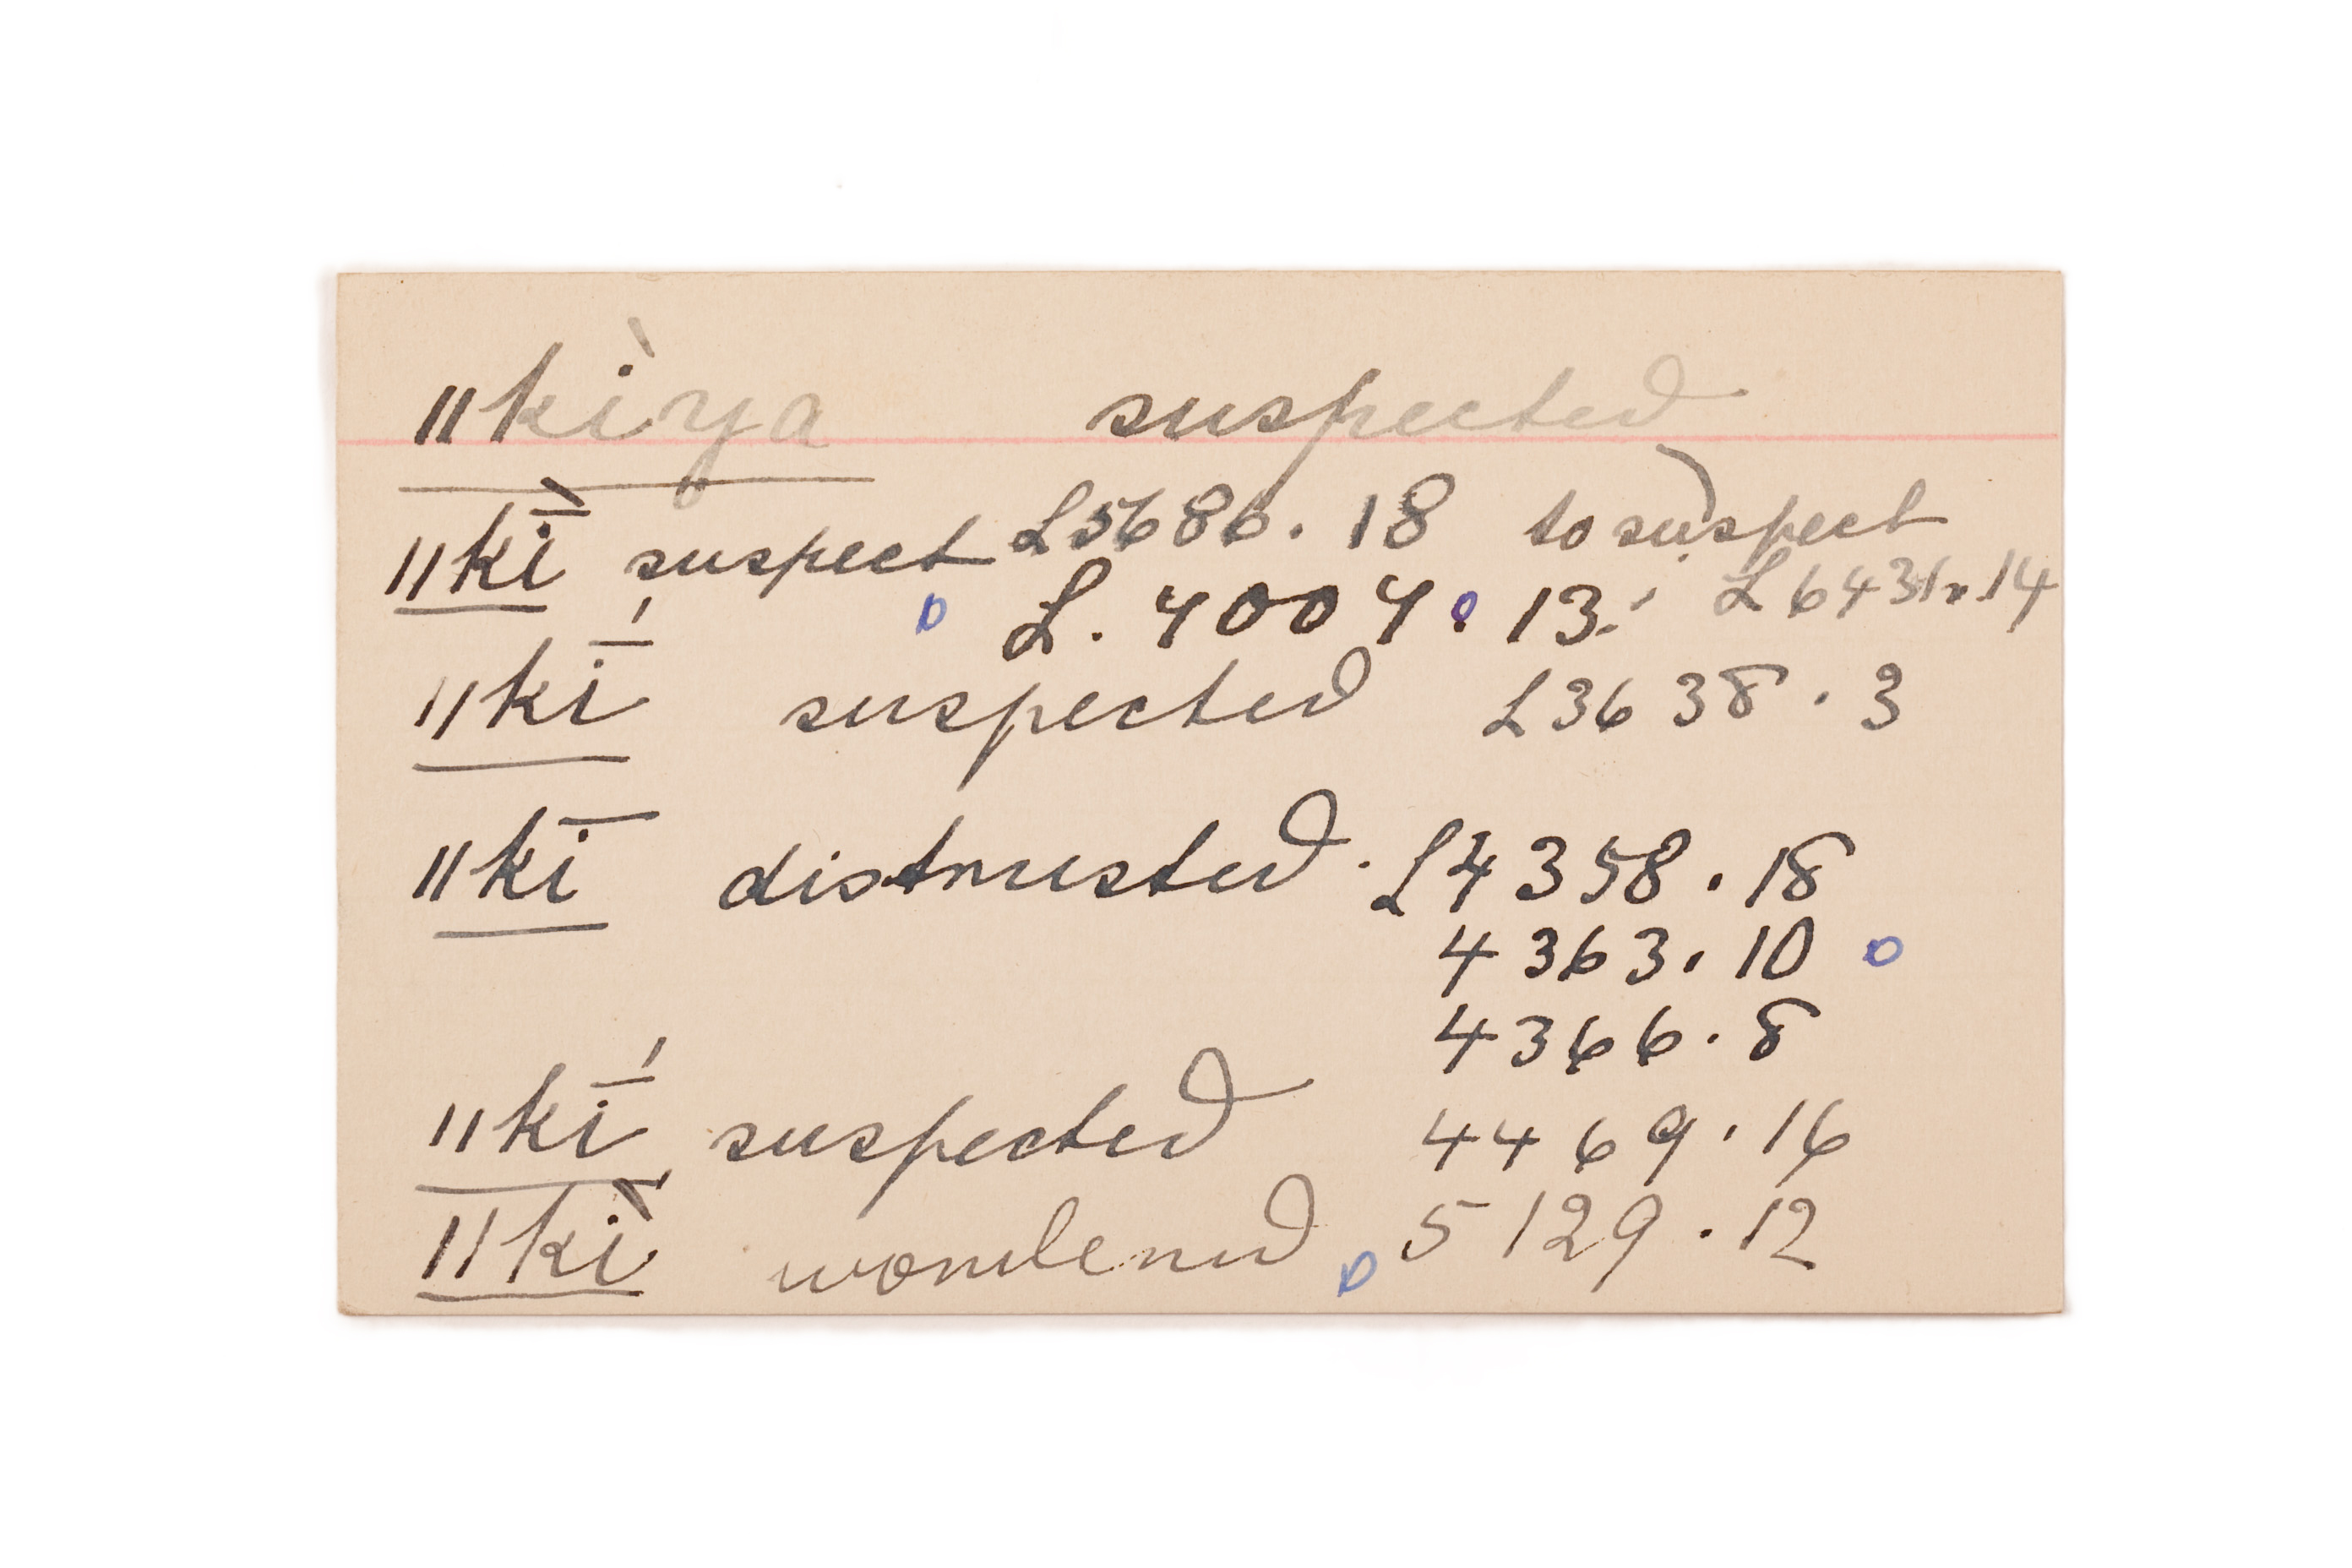 ǁkìya suspected
ǁkī̀ suspect L5686.18 to suspect
L.4004.13. L6431.14
ǁkī́ suspected L3638.3
ǁkī distrusted. L4358.18
4363.10
4366.8
ǁkī́ suspected 4469.16
ǁkì wondered 5129.12